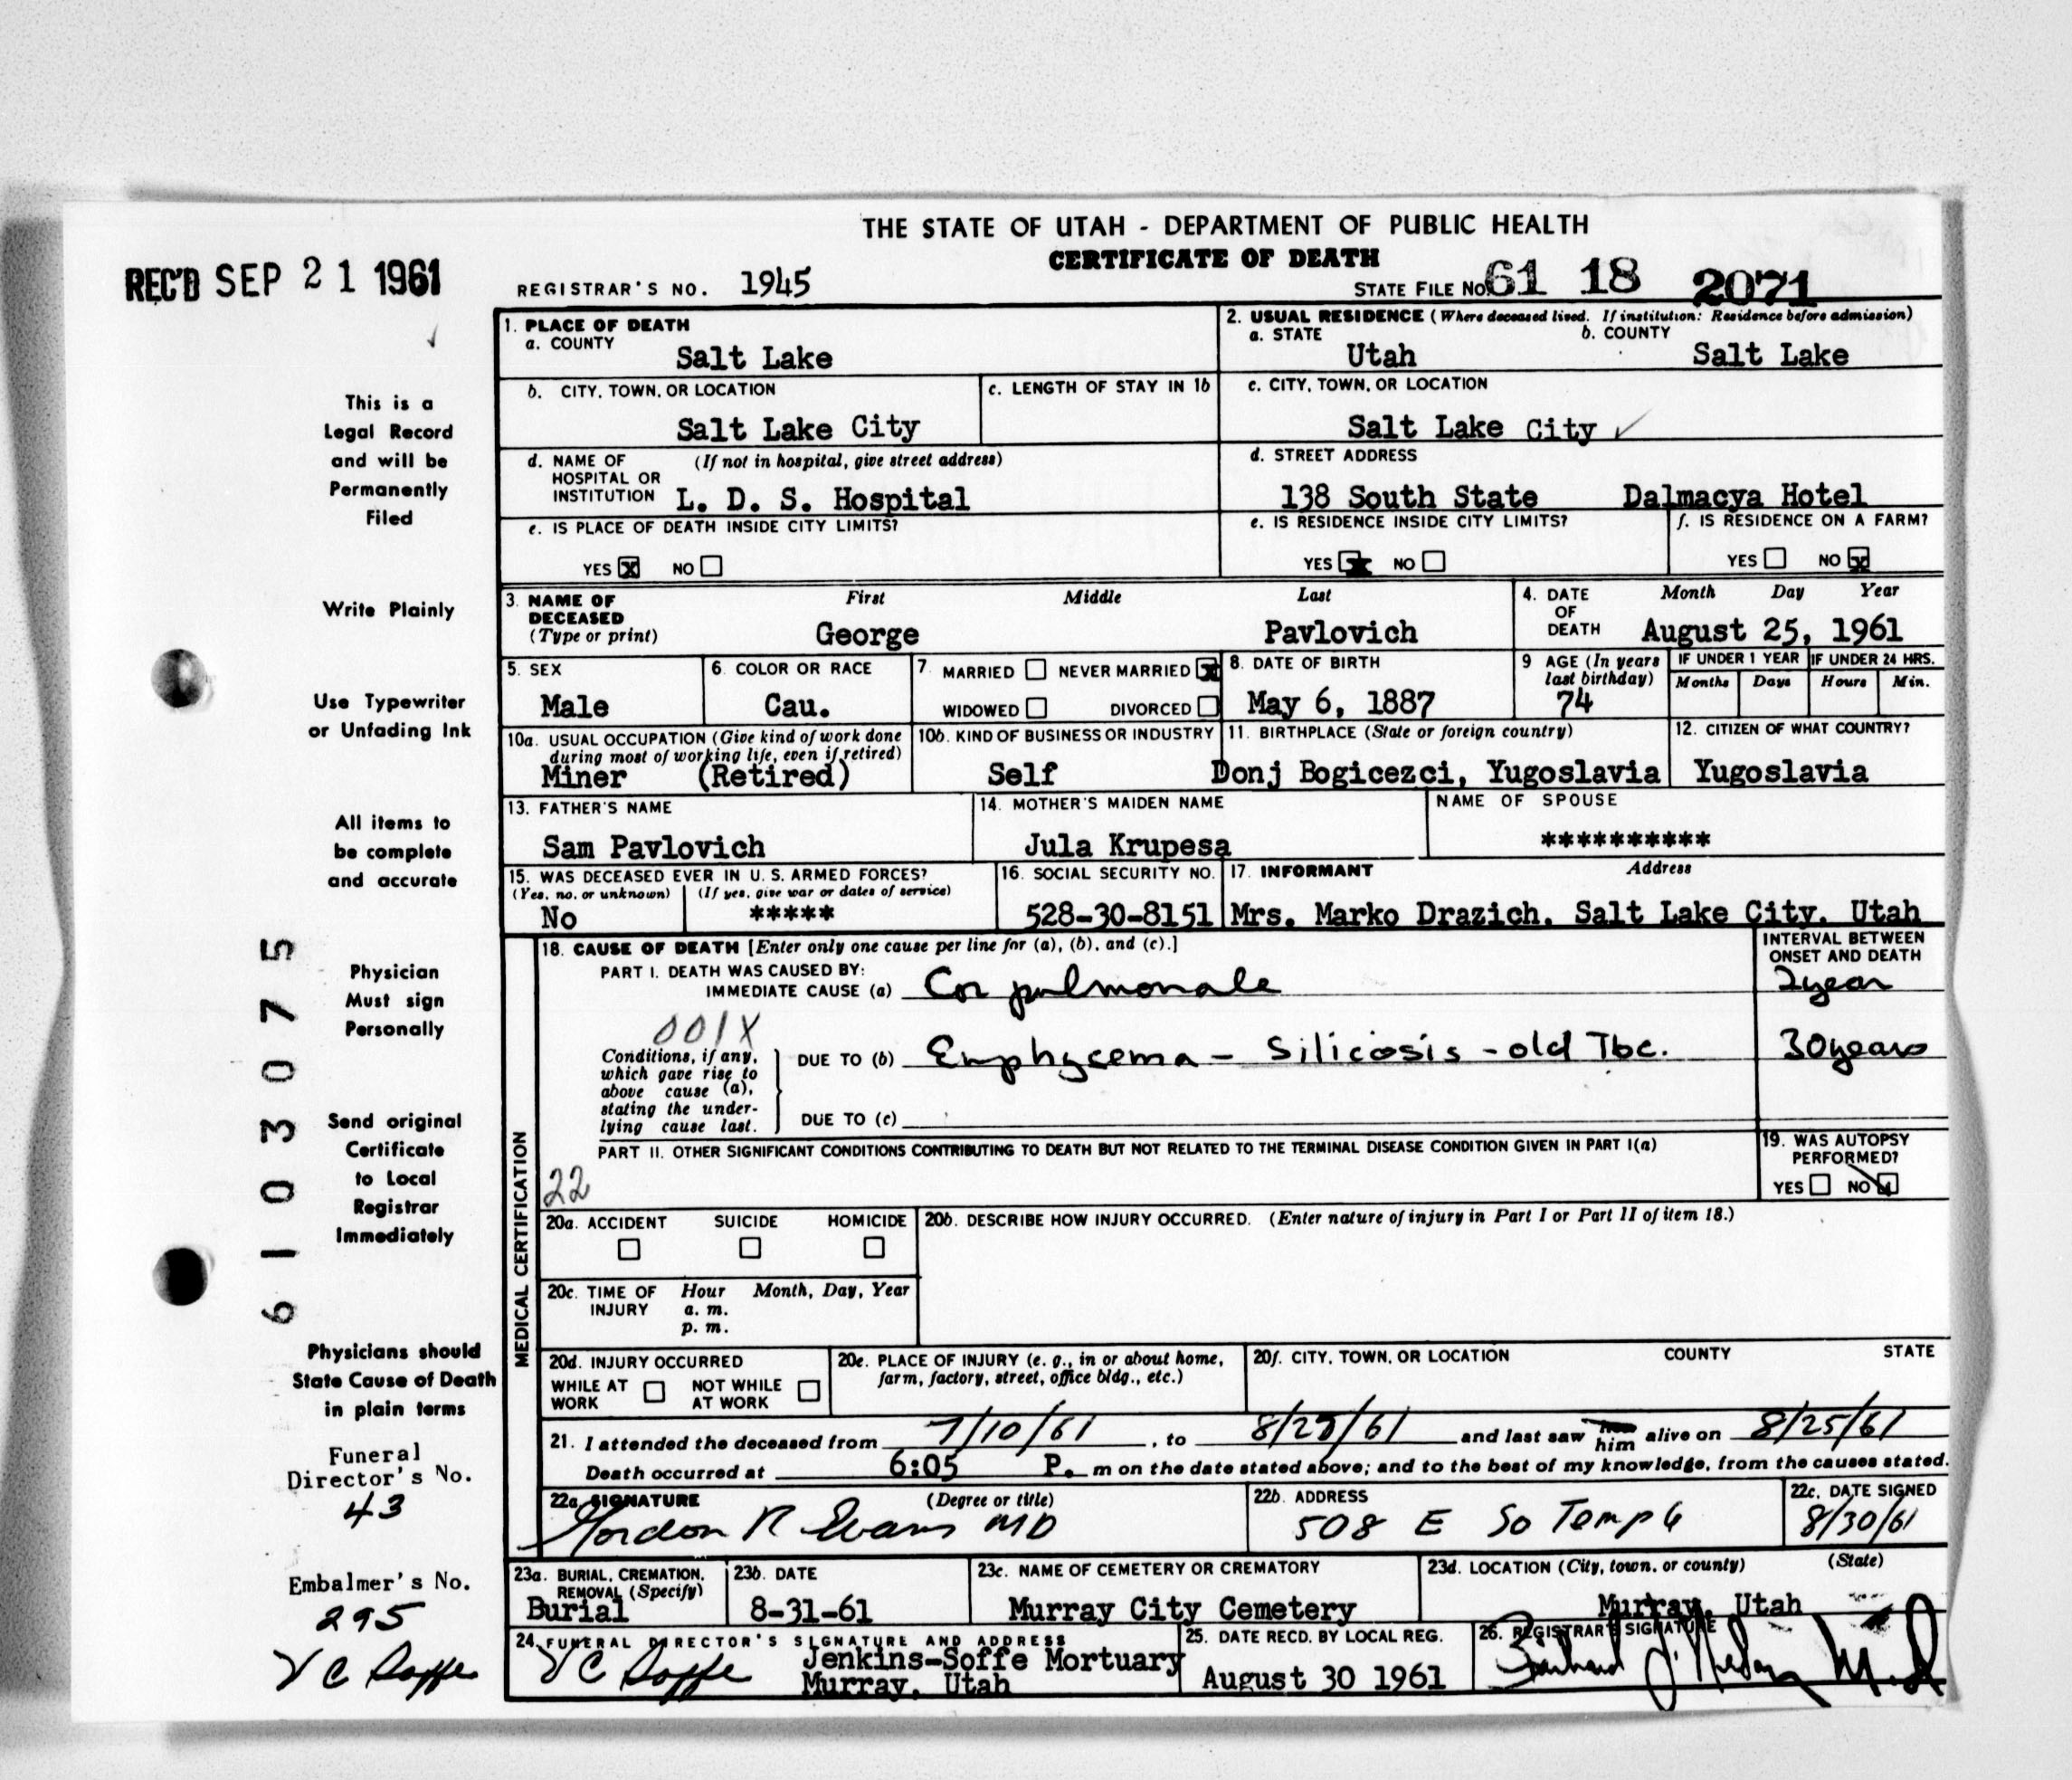 THE STATE OF UTAH - DEPARTMENT OF PUBLIC HEALTH
CERTIFICATE OF DEATH
REC'D SEP 21 1961
REGISTRAR'S NO. 1945
STATE FILE NO. 61 18 2071
This is a
Legal Record
and will be
Permanently
Filed
Write Plainly
Use Typewriter
or Unfading Ink
All items to
be complete
and accurate
Physician
Must sign
Personally
Send original
Certificate
to Local
Registrar
Immediately
Physicians should
State Cause of Death
in plain terms
Funeral
Director's No.
43
Embalmer's No.
295
V C Soffe
6103075
1. PLACE OF DEATH
a. COUNTY
Salt Lake
2. USUAL RESIDENCE (Where deceased lived. If institution: Residence before admission)
a. STATE b. COUNTY
Utah Salt Lake
b. CITY, TOWN, OR LOCATION
Salt Lake City
c. LENGTH OF STAY IN 1b
c. CITY, TOWN, OR LOCATION
Salt Lake City ✓
d. NAME OF (If not in hospital, give street address)
HOSPITAL OR
INSTITUTION L. D. S. Hospital
d. STREET ADDRESS
138 South State Dalmacya Hotel
e. IS PLACE OF DEATH INSIDE CITY LIMITS?
YES X NO
e. IS RESIDENCE INSIDE CITY LIMITS?
YES X NO
f. IS RESIDENCE ON A FARM?
YES NO X
3. NAME OF First Middle Last
DECEASED
(Type or print) George Pavlovich
4. DATE Month Day Year
OF
DEATH August 25, 1961
5. SEX
Male
6. COLOR OR RACE
Cau.
7. MARRIED NEVER MARRIED X
WIDOWED DIVORCED
8. DATE OF BIRTH
May 6, 1887
9 AGE (In years
last birthday)
74
IF UNDER 1 YEAR
Months Days
IF UNDER 24 HRS.
Hours Min.
10a. USUAL OCCUPATION (Give kind of work done
during most of working life, even if retired)
Miner (Retired)
10b. KIND OF BUSINESS OR INDUSTRY
Self
11. BIRTHPLACE (State or foreign country)
Donj Bogicezci, Yugoslavia
12. CITIZEN OF WHAT COUNTRY?
Yugoslavia
13. FATHER'S NAME
Sam Pavlovich
14. MOTHER'S MAIDEN NAME
Jula Krupesa
NAME OF SPOUSE
**********
15. WAS DECEASED EVER IN U. S. ARMED FORCES?
(Yes, no, or unknown) (If yes, give war or dates of service)
No *****
16. SOCIAL SECURITY NO.
528-30-8151
17. INFORMANT Address
Mrs. Marko Drazich, Salt Lake City, Utah
MEDICAL CERTIFICATION
18. CAUSE OF DEATH [Enter only one cause per line for (a), (b), and (c).]
INTERVAL BETWEEN
ONSET AND DEATH
PART I. DEATH WAS CAUSED BY:
IMMEDIATE CAUSE (a) Cor pulmonale 2 year
001X
Conditions, if any,
which gave rise to
above cause (a),
stating the under-
lying cause last.
DUE TO (b) Emphycema - Silicosis - old Tbc. 30 years
DUE TO (c)
PART II. OTHER SIGNIFICANT CONDITIONS CONTRIBUTING TO DEATH BUT NOT RELATED TO THE TERMINAL DISEASE CONDITION GIVEN IN PART I(a)
22
19. WAS AUTOPSY
PERFORMED?
YES NO
20a. ACCIDENT SUICIDE HOMICIDE
20b. DESCRIBE HOW INJURY OCCURRED. (Enter nature of injury in Part I or Part II of item 18.)
20c. TIME OF Hour Month, Day, Year
INJURY a. m.
p. m.
20d. INJURY OCCURRED
WHILE AT NOT WHILE
WORK AT WORK
20e. PLACE OF INJURY (e. g., in or about home,
farm, factory, street, office bldg., etc.)
20f. CITY, TOWN, OR LOCATION COUNTY STATE
21. I attended the deceased from 7/10/61, to 8/25/61 and last saw him alive on 8/25/61
Death occurred at 6:05 P. m on the date stated above; and to the best of my knowledge, from the causes stated.
22a. SIGNATURE (Degree or title)
Gordon R Evans MD
22b. ADDRESS
508 E So Temple
22c. DATE SIGNED
8/30/61
23a. BURIAL, CREMATION,
REMOVAL (Specify)
Burial
23b. DATE
8-31-61
23c. NAME OF CEMETERY OR CREMATORY
Murray City Cemetery
23d. LOCATION (City, town, or county) (State)
Murray, Utah
24. FUNERAL DIRECTOR'S SIGNATURE AND ADDRESS
V C Soffe Jenkins-Soffe Mortuary
Murray, Utah
25. DATE RECD. BY LOCAL REG.
August 30 1961
26. REGISTRAR'S SIGNATURE